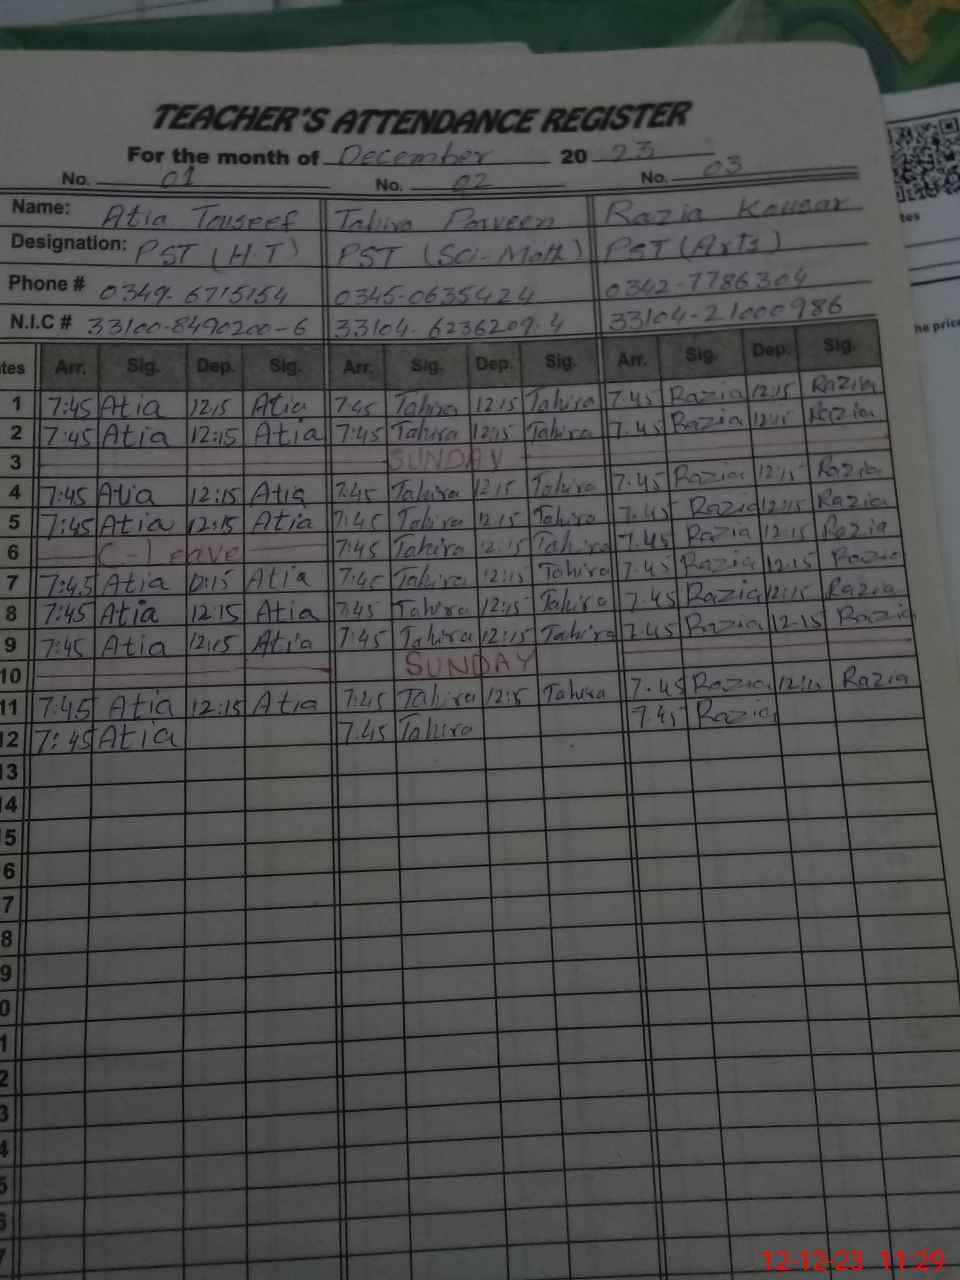 TEACHER'S ATTENDANCE REGISTER
For the month of December 2023
No. 01 No. 02 No. 03
Name: Atia Touseef Tahira Parveen Razia Kousar
Designation: PST (HT) PST (Sci-Math) PST (Arts)
Phone # 0349-6715154 0345-0635424 0342-7786304
N.I.C # 33100-8490200-6 33104-6236209-4 33104-21000986
tes Arr. Sig. Dep. Sig. Arr. Sig. Dep. Sig. Arr. Sig. Dep. Sig.
1 7:45 Atia 12:15 Atia 7:45 Tahira 12:15 Tahira 7.45 Razia 12:15 Razia
2 7:45 Atia 12:15 Atia 7:45 Tahira 12:15 Tahira 7.45 Razia 12:15 Razia
3 SUNDAY
4 7:45 Atia 12:15 Atia 7:45 Tahira 12:15 Tahira 7.45 Razia 12:15 Razia
5 7:45 Atia 12:15 Atia 7:45 Tahira 12:15 Tahira 7.45 Razia 12:15 Razia
6 C-Leave 7:45 Tahira 12:15 Tahira 7.45 Razia 12:15 Razia
7 7:45 Atia 12:15 Atia 7:45 Tahira 12:15 Tahira 7.45 Razia 12.15 Razia
8 7:45 Atia 12:15 Atia 7:45 Tahira 12:15 Tahira 7.45 Razia 12:15 Razia
9 7:45 Atia 12:15 Atia 7:45 Tahira 12:15 Tahira 7.45 Razia 12-15 Razia
10 SUNDAY
11 7:45 Atia 12:15 Atia 7:45 Tahira 12:15 Tahira 7.45 Razia 12:15 Razia
12 7:45 Atia 7.45 Tahira 7.45 Razia
13
14
15
6
7
8
9
0
1
2
3
4
5
6
7
tes
he price
12-12-23 11:29